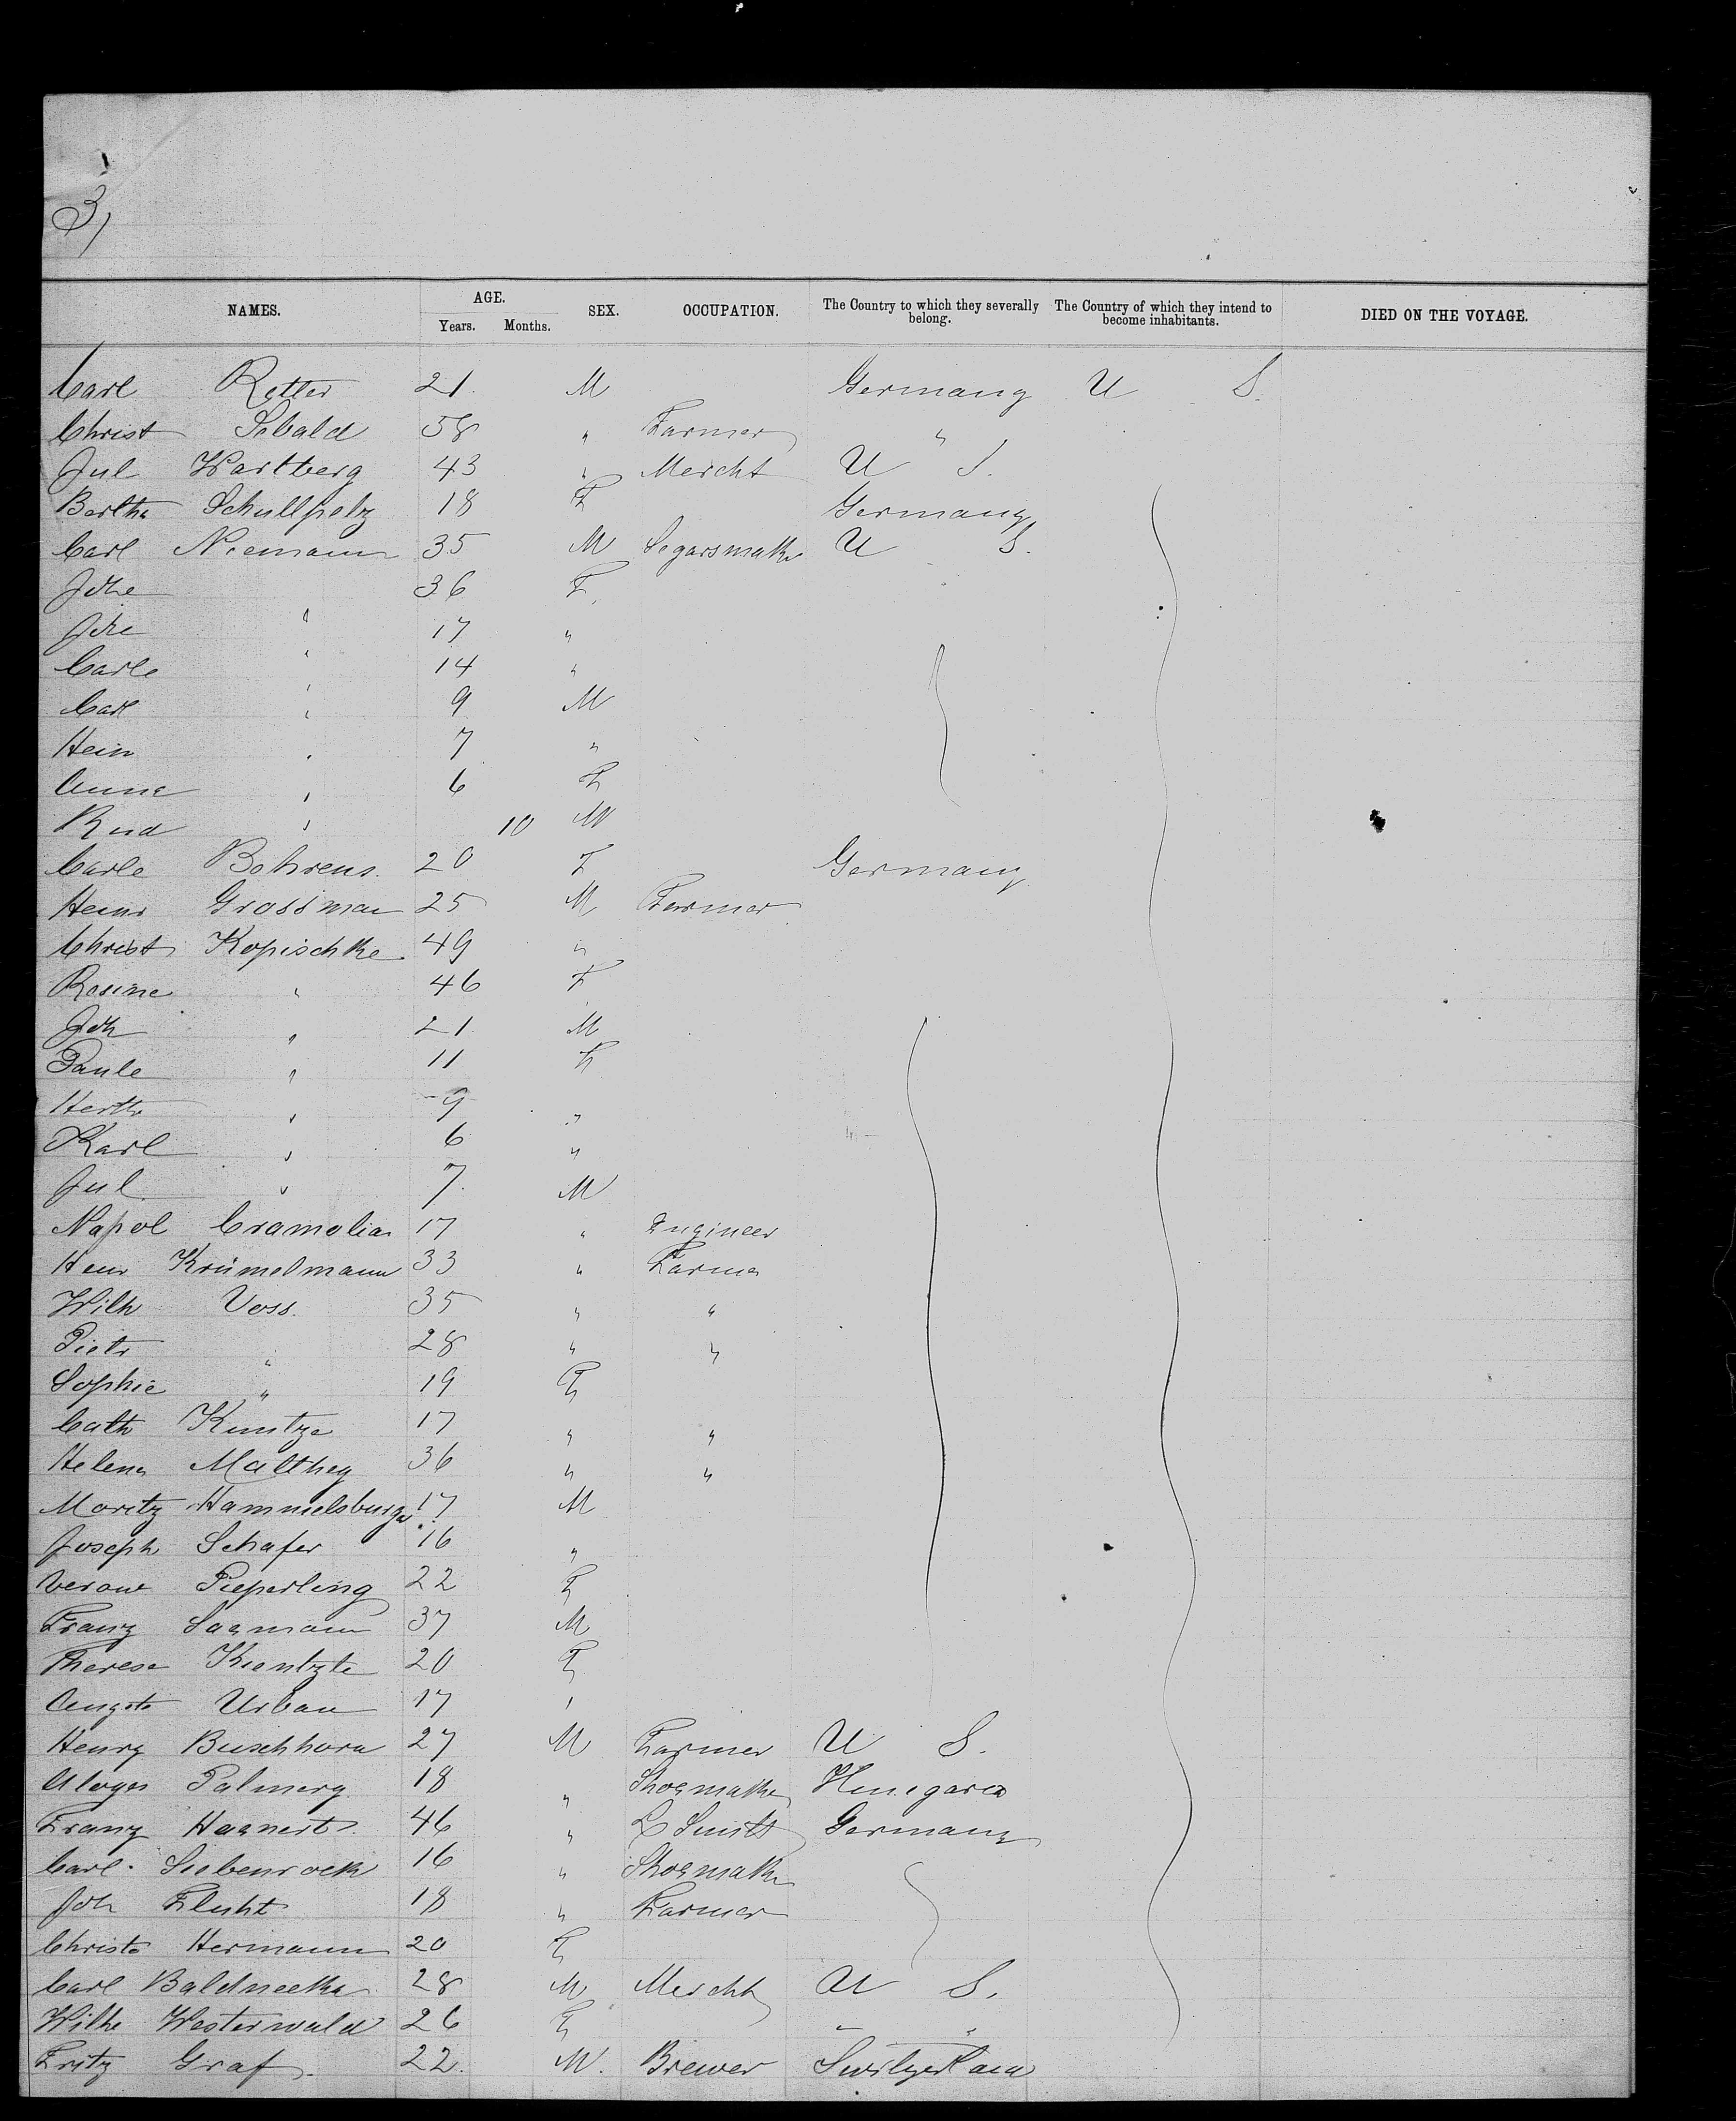 3)
NAMES. AGE. Years. Months. SEX. OCCUPATION. The Country to which they severally belong. The Country of which they intend to become inhabitants. DIED ON THE VOYAGE.
Carl Retter 21. M Germany U S.
Christ Sebald 58 " Farmer "
Jul Wartberg 43 " Mercht U S.
Bertha Schullpelz 18 F Germany
Carl Niemann 35 M Segarsmakr U S.
Johe " 36 F.
Johe " 17 "
Carle " 14 "
Carl " 9 M
Hein " 7 "
Anna " 6 F
Rud " 10 M
Carle Behrens 20 F Germany
Heinr Grossman 25 M Farmer
Christ Kopischke 49 "
Rosine " 46 F
Joh " 21 M
Paule " 11 F
Herth " 9 "
Karl " 6 "
Jul " 7. M
Napol Cramolia 17 " Engineer
Heinr Krümelmann 33 " Farmer
Wilh Voss. 35 " "
Pietr " 28 " "
Sophie " 19 F
Cath Kuntze 17 " "
Helena Malthey 36 " "
Moritz Hammelsburger 17 M
Joseph Schafer 16 "
Veron Pieperling 22 F
Franz 37 M
Therese Kientzle 20 F
Augste Urban 17 "
Henry Buschhorn 27 M Farmer U S.
Aloys Palmery 18 " Shoemakr Hungaria
Franz Hagnert 46 " L Smith Germany
Carl Siebenrock 16 " Shoemakr
Joh Flucht 18 " Farmer
Christe Hermann 20 F
Carl Baldneeka 28 M Mercht U S.
Wilhe Westerwald 26 F " "
Fritz Graf. 22. M. Brewer Switzerland